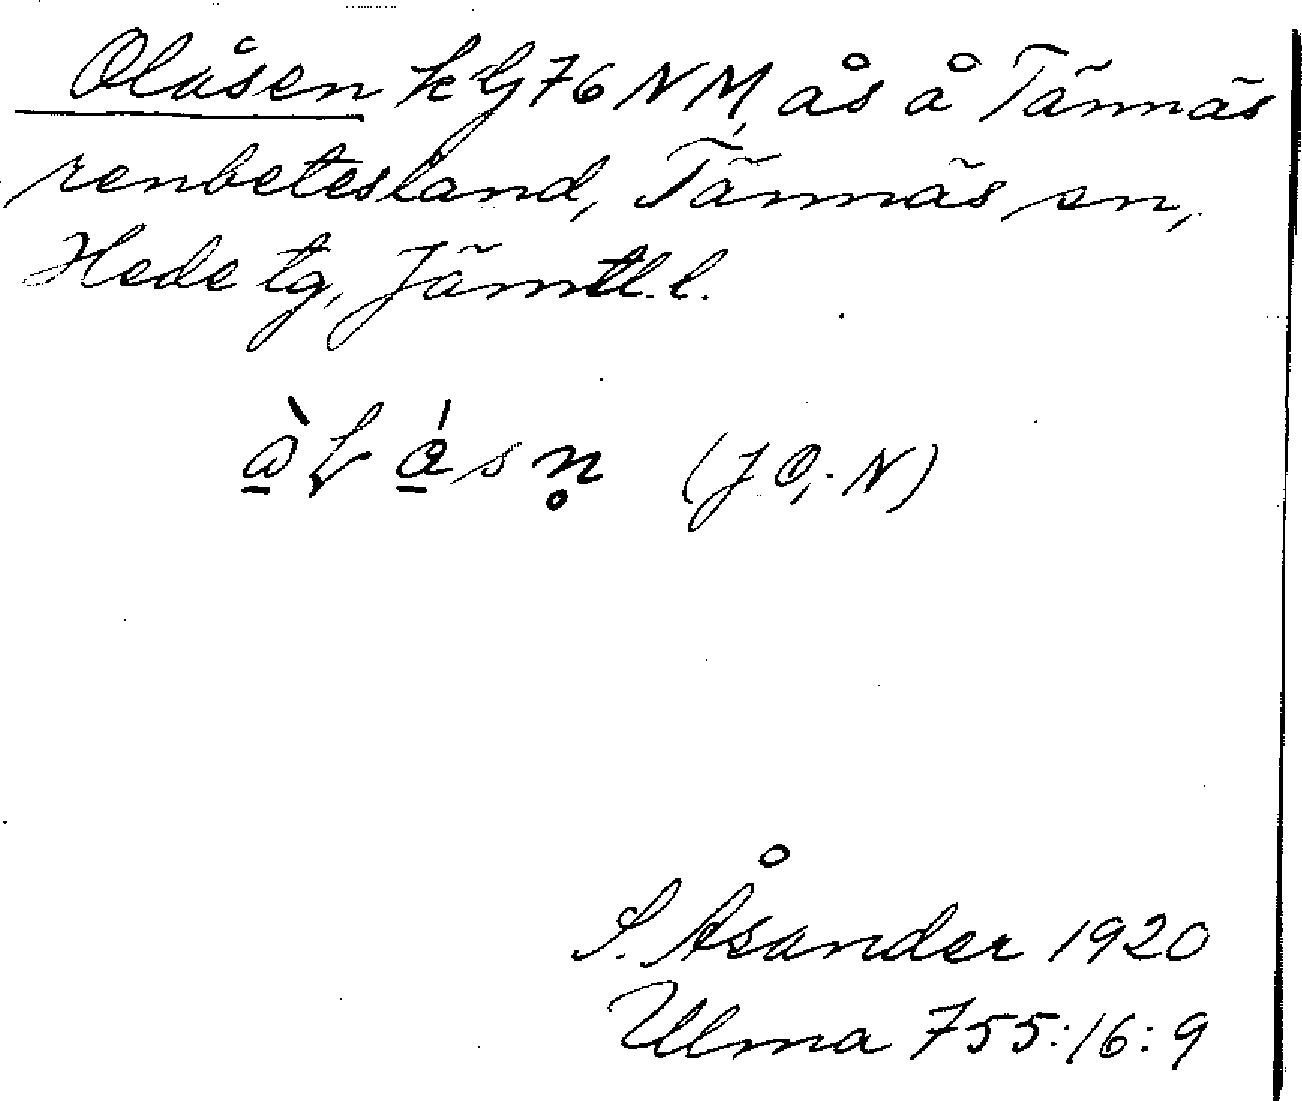 Olåsen k G76 NM, ås å Tännäs
renbetesland, Tännäs sn,
Hede tg, Jämtl.l.
å̱̀L ǻ̱sn̥ (J Ö,-N)
S. Åsander 1920
Ulma 755:16:9